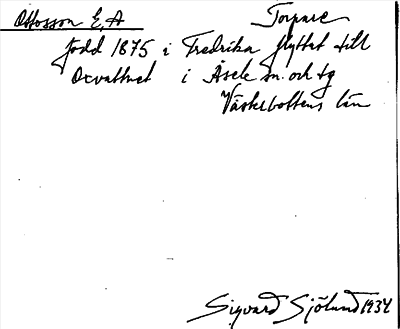 Ottosson E, A Torpare
född 1875 i Fredrika flyttat till
Oxvattnet i Åsele sn. och tg
Västerbottens län
Sigvard Sjölund 1934